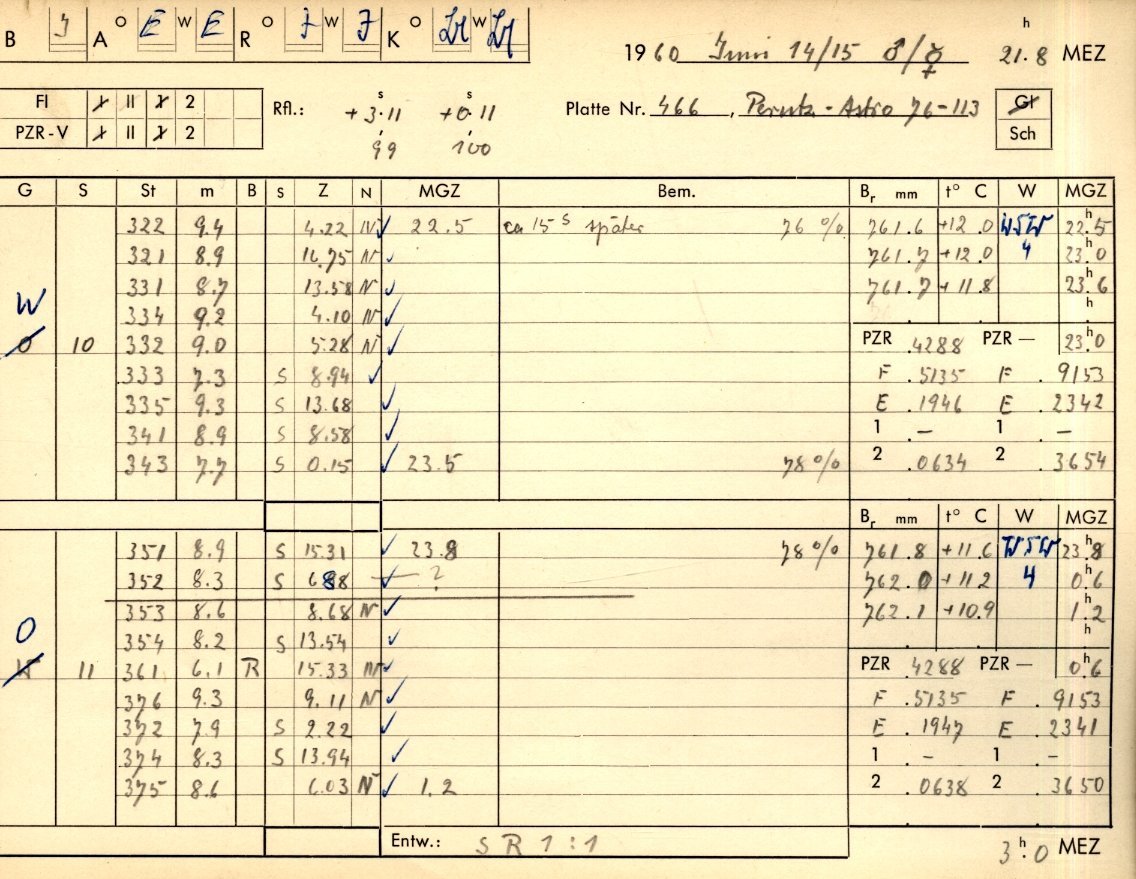 B J A O E W E R O J W J K O W
1960 Juni 14/15 ♂/☿ 21.8 h MEZ
Fl 1 II 1 2
PZR-V 1 II 1 2
Rfl.: +3.11 s +0.11 s
99 100
Platte Nr. 466, Perutz-Astro 76-113
Gl
Sch
G S St m B S Z N MGZ Bem. Br mm t° C W MGZ
322 9.4 4.22 N ✓ 22.5 ca 15 s später 76 % 761.6 +12.0 WSW 22.5 h
321 8.9 N ✓ 761.7 +12.0 4 23.0 h
331 8.7 13.58 N ✓ 761.7 +11.8 23.6 h
W 334 9.2 4.10 N ✓ h
O 10 332 9.0 5.28 N ✓ PZR .4288 PZR – 23.0 h
333 7.3 S 8.94 ✓ F .5135 F .9153
335 9.3 S 13.68 ✓ E .1946 E .2342
341 8.9 S 8.58 ✓ 1 .– 1 .–
343 7.7 S 0.15 ✓ 23.5 78 % 2 .0634 2 .3654
Br mm t° C W MGZ
351 8.9 S 15.31 ✓ 23.8 78 % 761.8 +11.6 WSW 23.8 h
352 8.3 S 6.88 ✓ – ? 762.0 +11.2 4 0.6 h
353 8.6 8.68 N ✓ 762.1 +10.9 1.2 h
O 354 8.2 S 13.54 ✓ h
W 11 361 6.1 R 15.33 N ✓ PZR .4288 PZR – 0.6 h
376 9.3 9.11 N ✓ F .5135 F .9153
372 7.9 S 2.22 ✓ E .1947 E .2341
374 8.3 S 13.94 ✓ 1 .– 1 .–
375 8.6 6.03 N ✓ 1.2 2 .0638 2 .3650
Entw.: SR 1:1 3.0 h MEZ